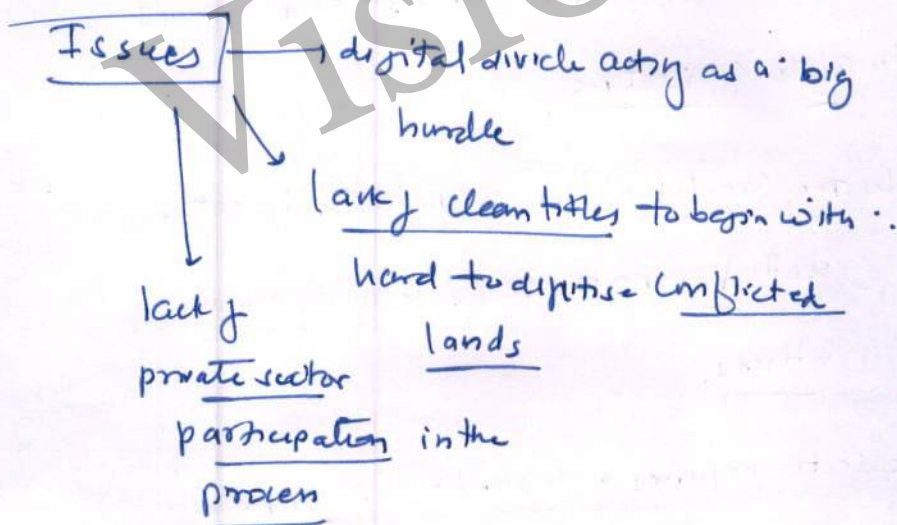 Issues → digital divide acting as a big
hurdle
lack of clean titles to begin with.
hard to digitise conflicted
lands
lack of
private sector
participation in the
process
Visio